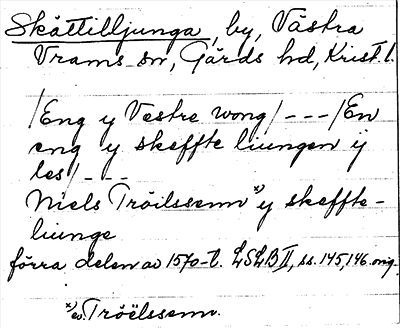 Skättilljunga, by, Västra
Vrams sn, Gärds hd, Krist. l.
/Eng y Vestre wong/ - - - /En
eng y skeffte liungen ÿ
les/ - - -
Niels Tröilssenn x) y skeffte-
liunge
förra delen av 1570-t. LSLB II, ss. 145, 146. orig.
x) ev. Tröëlssenn.